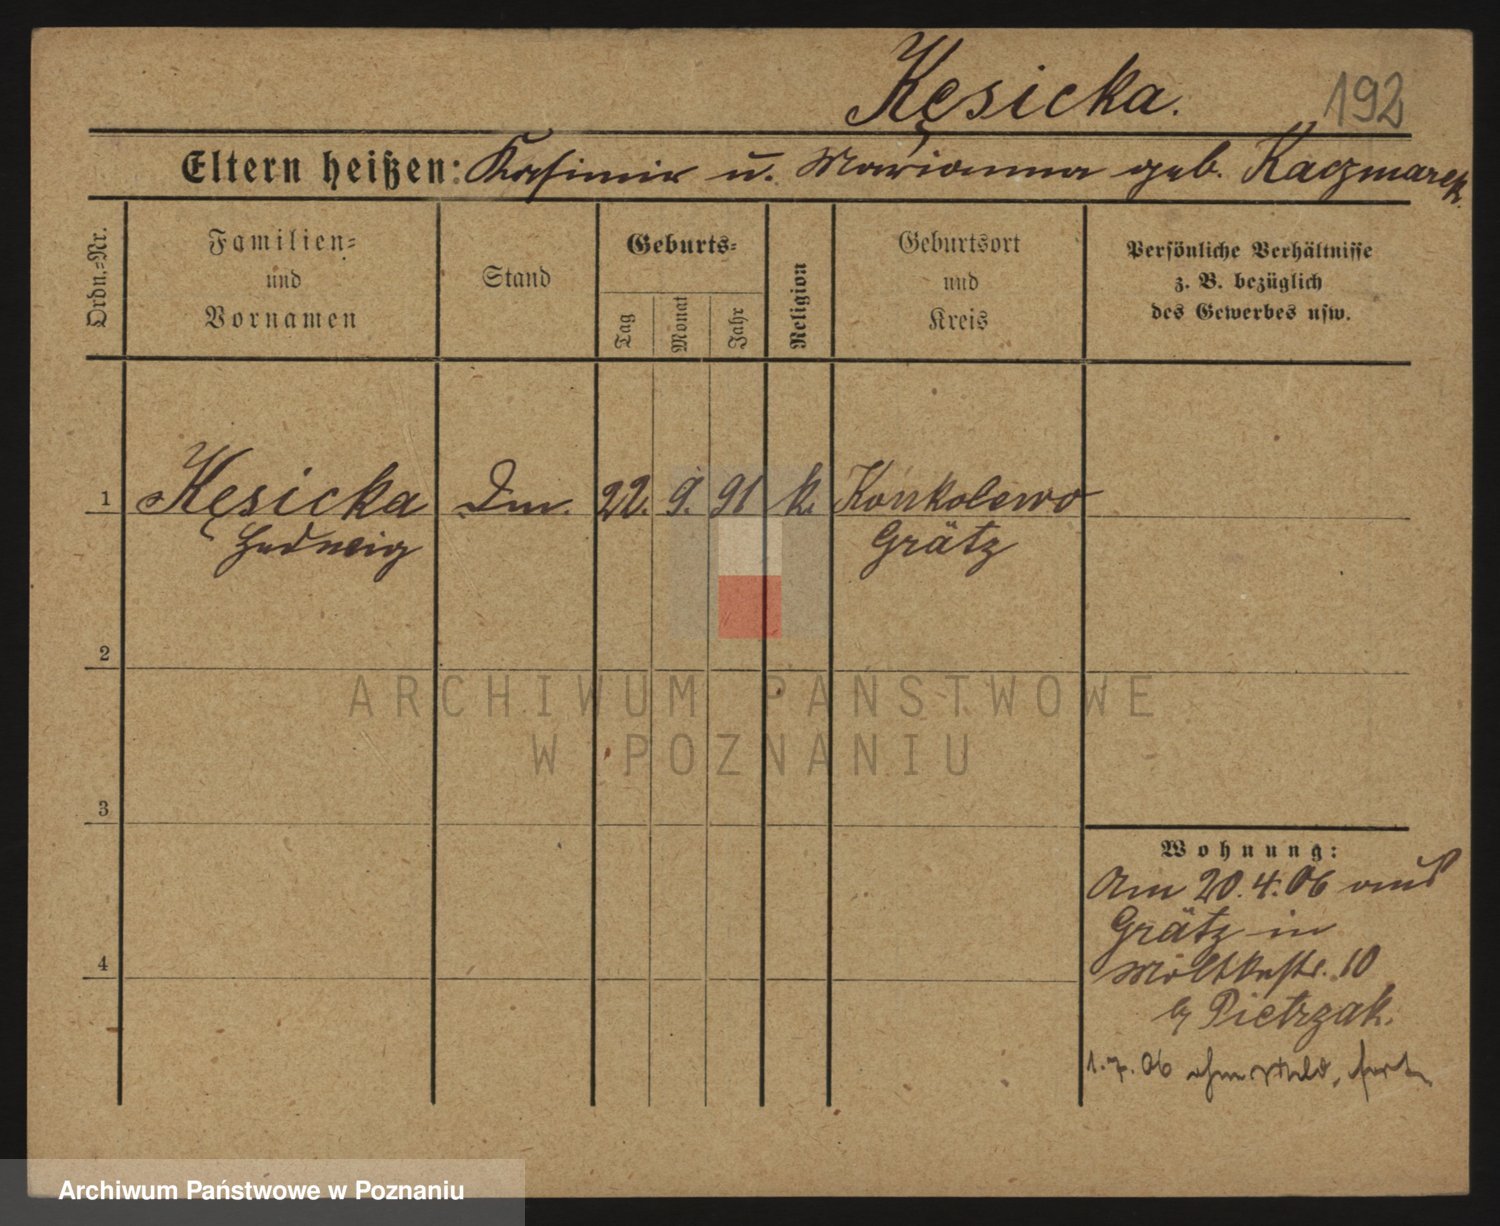 Kęsicka.
192
Eltern heißen: Kasimir u. Marianna geb. Kaczmarek.
Ordn.-Nr.
Familien-
und
Vornamen
Stand
Geburts-
Tag
Monat
Jahr
Religion
Geburtsort
und
Kreis
Persönliche Verhältnisse
z. B. bezüglich
des Gewerbes usw.
1 Kęsicka Dm. 22. 9. 91 k. Konkolewo
Hedwig Grätz
2
ARCHIWUM PAŃSTWOWE
W POZNANIU
3
4
Wohnung:
Am 20.4.06 aus
Grätz in
Moltkestr. 10
b/ Pietrzak.
1.7.06 ohne Meld. fort
Archiwum Państwowe w Poznaniu